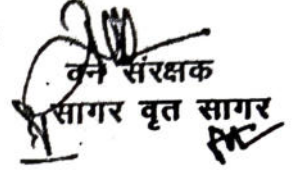 वन संरक्षक
सागर वृत सागर